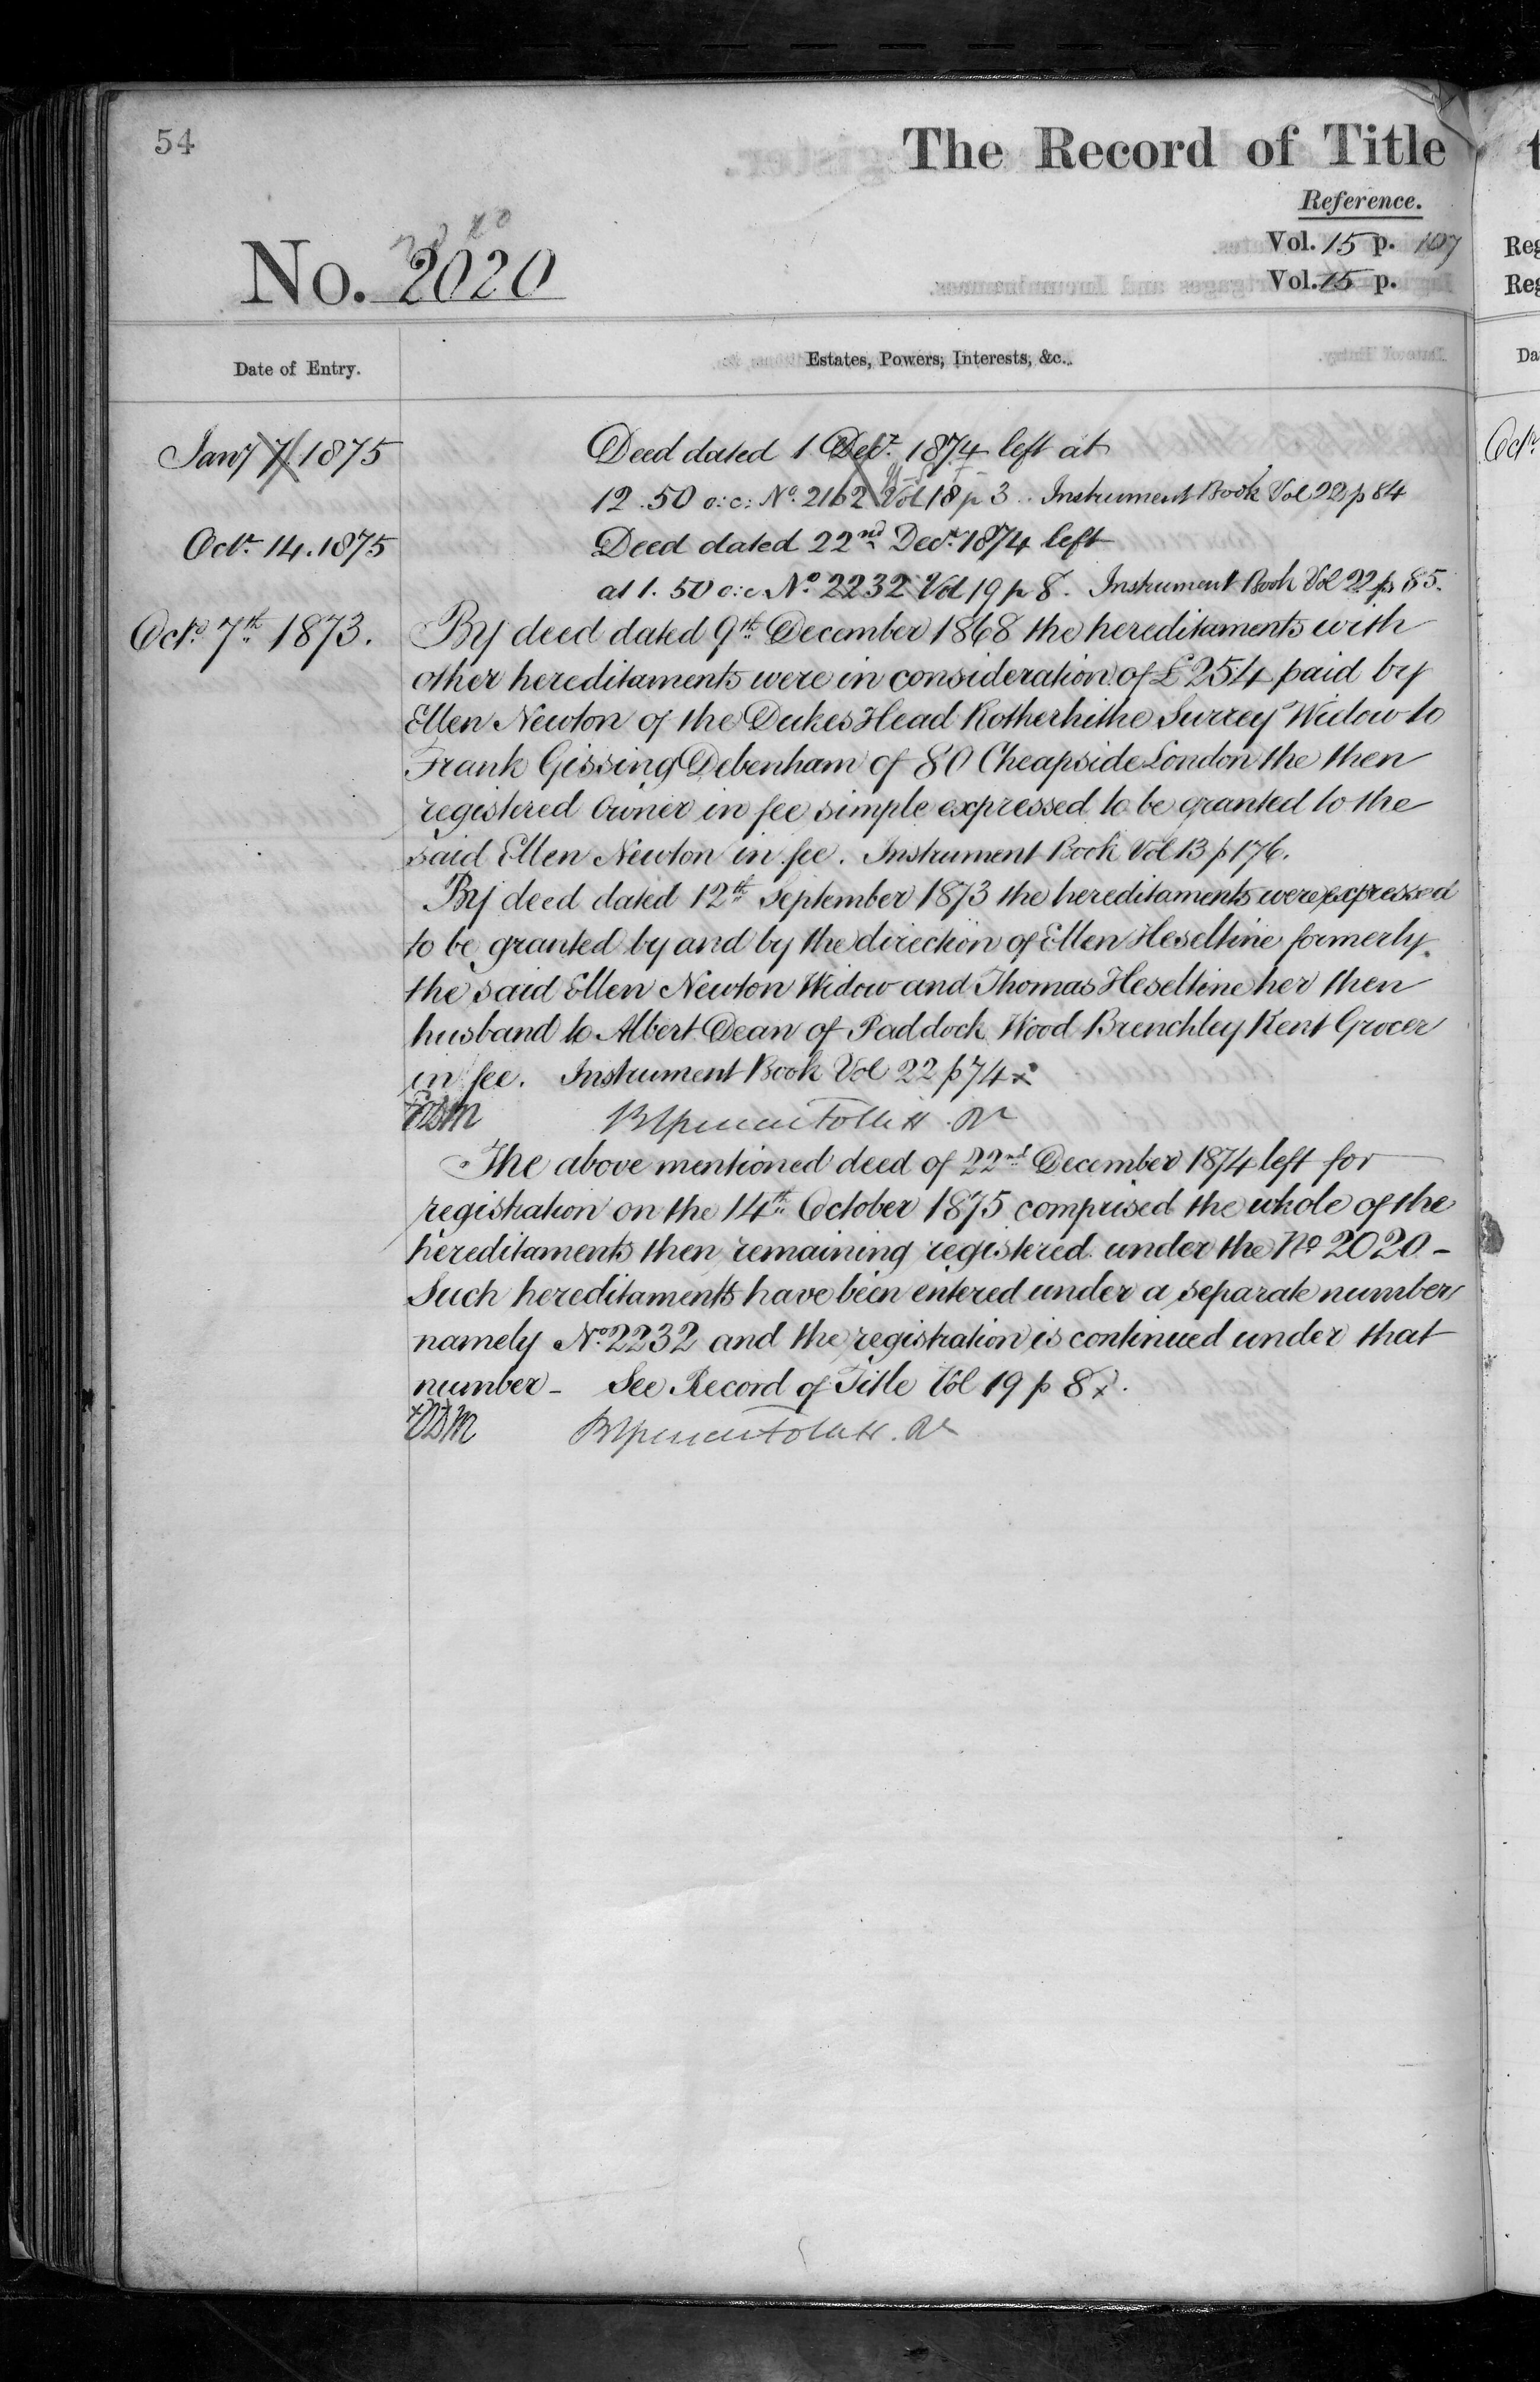 54
The Record of Title
Reference.
Vol. 15 p. 107
No. 2020
Vol. 15 p.
Date of Entry.
Estates, Powers, Interests, &c.
Jany 7 1875
Deed dated 1 Decr. 1874 left at
12.50 o:c: No. 2162 Vol 18 p 3. Instrument Book Vol 22 p 84
Octr. 14. 1875
Deed dated 22nd Decr. 1874 left
at 1.50 o:c No. 2232 Vol 19 p 8. Instrument Book Vol 22 p 85.
Octr. 7th 1873.
By deed dated 9th December 1868 the hereditaments with
other hereditaments were in consideration of £254 paid by
Ellen Newton of the Dukes Head Rotherhithe Surrey Widow to
Frank Gissing Debenham of 80 Cheapside London the then
registered Owner in fee simple expressed to be granted to the
said Ellen Newton in fee. Instrument Book Vol 13 p 176.
By deed dated 12th September 1873 the hereditaments were expressed
to be granted by and by the direction of Ellen Heseltine formerly
the said Ellen Newton Widow and Thomas Heseltine her then
husband to Albert Dean of Paddock Wood Brenchley Kent Grocer
in fee. Instrument Book Vol 22 p 74
The above mentioned deed of 22nd December 1874 left for
registration on the 14th October 1875 comprised the whole of the
hereditaments then remaining registered under the No 2020 -
Such hereditaments have been entered under a separate number
namely No. 2232 and the registration is continued under that
number - See Record of Title Vol 19 p 8.
Reg
Reg
Da
Octr.